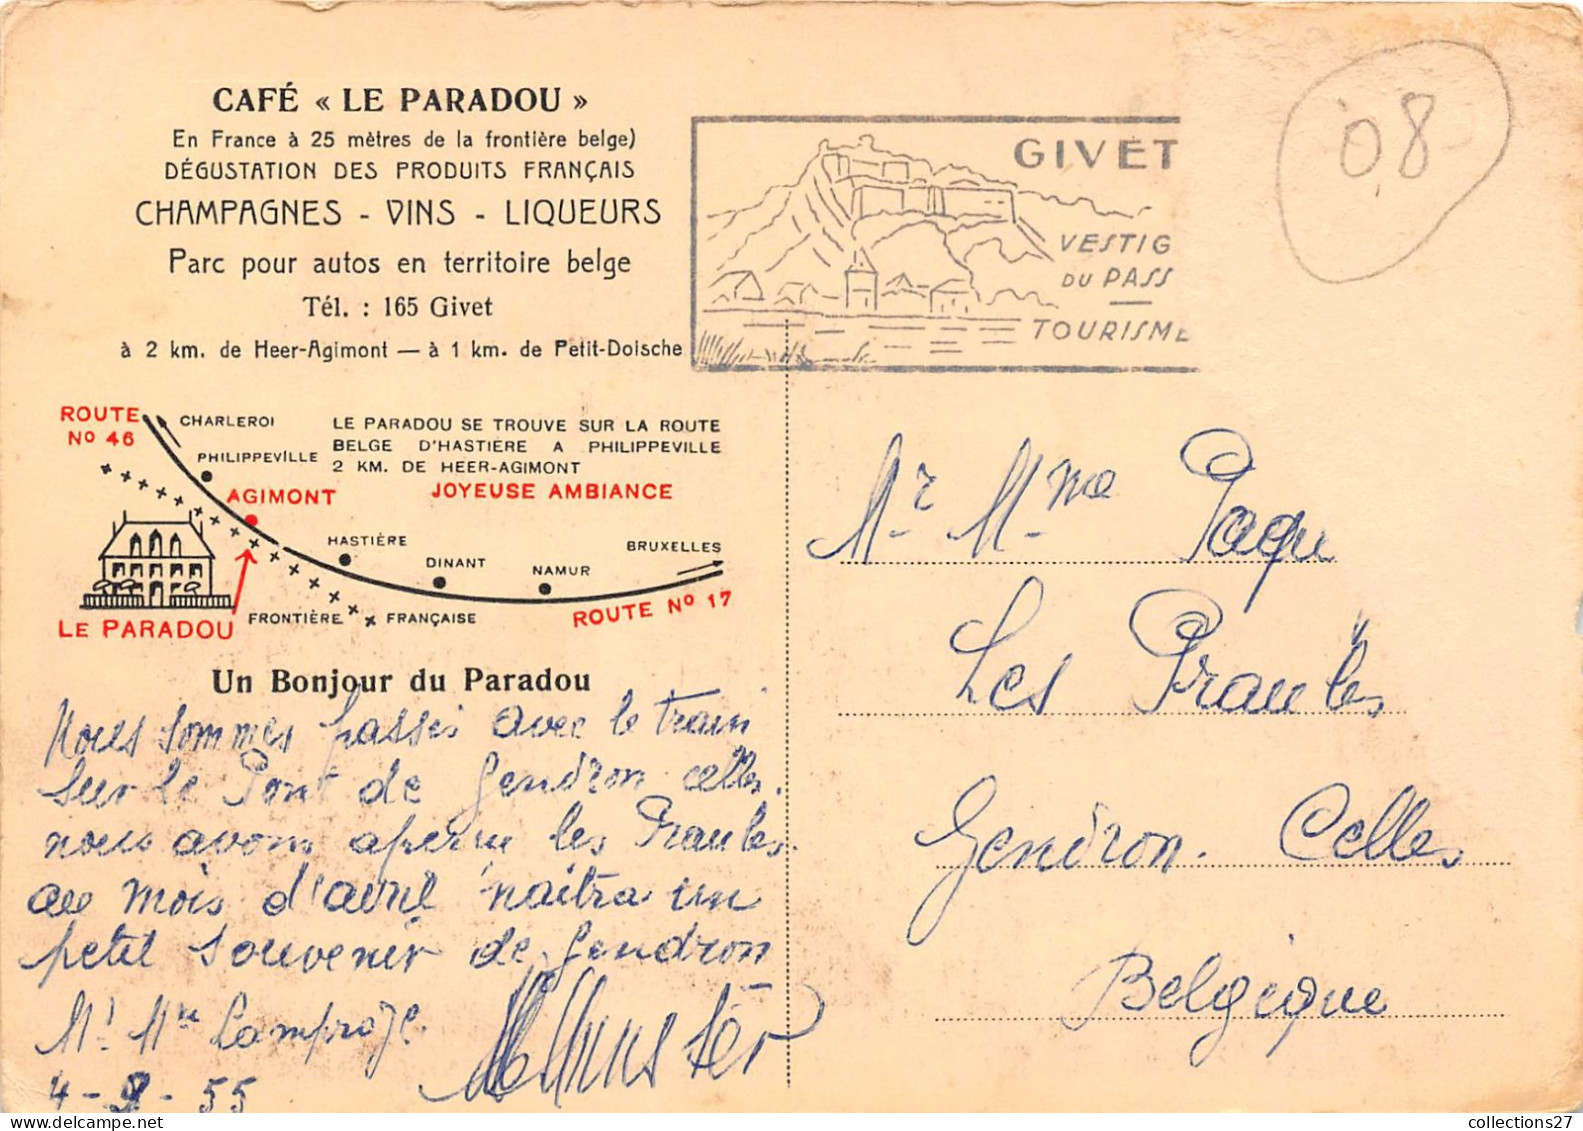 CAFÉ « LE PARADOU »
En France à 25 mètres de la frontière belge)
DÉGUSTATION DES PRODUITS FRANÇAIS
CHAMPAGNES - VINS - LIQUEURS
Parc pour autos en territoire belge
Tél. : 165 Givet
à 2 km. de Heer-Agimont — à 1 km. de Petit-Doische
GIVET
VESTIG
DU PASS
TOURISME
08
ROUTE
No 46
CHARLEROI
PHILIPPEVILLE
AGIMONT
LE PARADOU SE TROUVE SUR LA ROUTE
BELGE D'HASTIÈRE A PHILIPPEVILLE
2 KM. DE HEER-AGIMONT
JOYEUSE AMBIANCE
HASTIÈRE
DINANT
NAMUR
BRUXELLES
FRONTIÈRE FRANÇAISE
ROUTE No 17
LE PARADOU
Un Bonjour du Paradou
Nous sommes passés avec le train
sur le Pont de Gendron celles.
nous avons aperçu les
au mois d'avril naitra un
petit souvenir de Gendron
Mr Mme
4-9-55
Mr. Mme Paque
Les
Gendron. Celles
Belgique
collections27